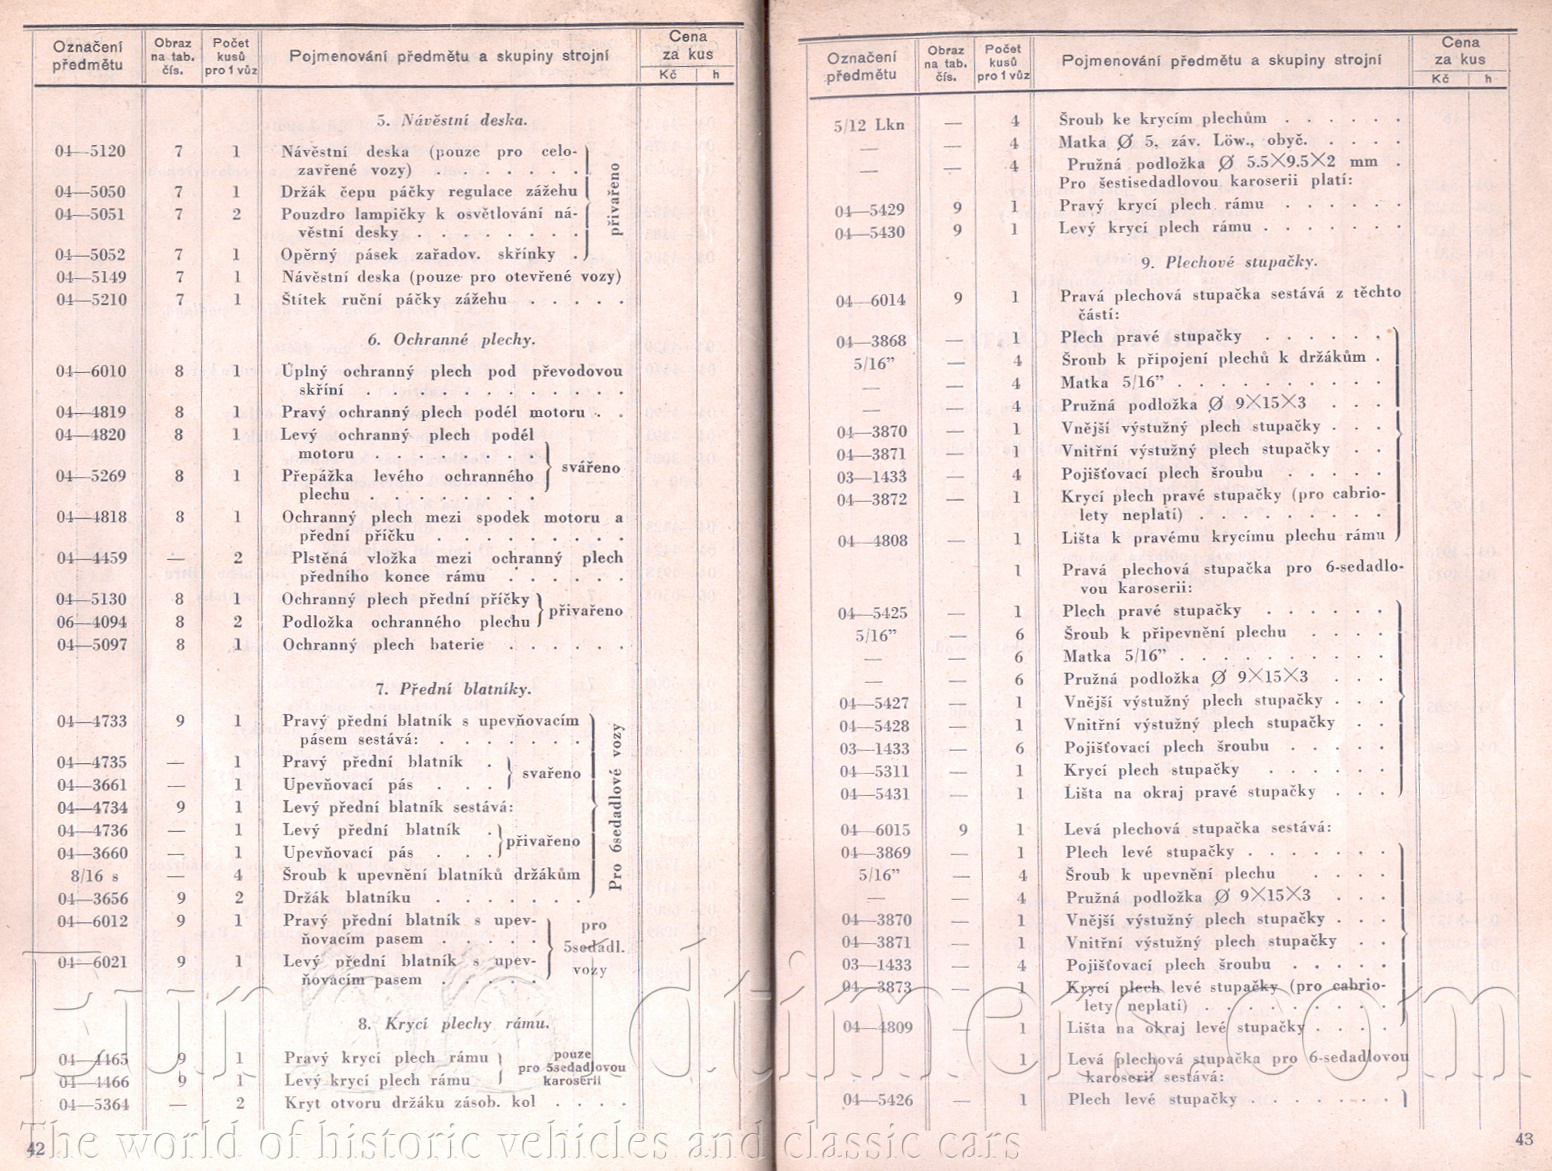 Označení předmětu | Obraz na tab. čís. | Počet kusů pro 1 vůz | Pojmenování předmětu a skupiny strojní | Cena za kus Kč h
5. Návěstní deska.
04—5120 7 1 Návěstní deska (pouze pro celo-
zavřené vozy) . . . . . . .
04—5050 7 1 Držák čepu páčky regulace zážehu
04—5051 7 2 Pouzdro lampičky k osvětlování ná-
věstní desky . . . . . . . .
04—5052 7 1 Opěrný pásek zařadov. skřínky .
přivařeno
04—5149 7 1 Návěstní deska (pouze pro otevřené vozy)
04—5210 7 1 Štítek ruční páčky zážehu . . . . .
6. Ochranné plechy.
04—6010 8 1 Úplný ochranný plech pod převodovou
skříní . . . . . . . . . . . .
04—4819 8 1 Pravý ochranný plech podél motoru . .
04—4820 8 1 Levý ochranný plech podél
motoru . . . . . . . .
04—5269 8 1 Přepážka levého ochranného
plechu . . . . . . . .
svářeno
04—4818 8 1 Ochranný plech mezi spodek motoru a
přední příčku . . . . . . . . .
04—4459 — 2 Plstěná vložka mezi ochranný plech
předního konce rámu . . . . . .
04—5130 8 1 Ochranný plech přední příčky
06—4094 8 2 Podložka ochranného plechu
přivařeno
04—5097 8 1 Ochranný plech baterie . . . . . .
7. Přední blatníky.
04—4733 9 1 Pravý přední blatník s upevňovacím
pásem sestává: . . . . . .
04—4735 — 1 Pravý přední blatník .
04—3661 — 1 Upevňovací pás . . .
svařeno
04—4734 9 1 Levý přední blatník sestává:
04—4736 — 1 Levý přední blatník .
04—3660 — 1 Upevňovací pás . . .
přivařeno
8/16 s — 4 Šroub k upevnění blatníků držákům
04—3656 9 2 Držák blatníku . . . . . . .
Pro 6sedadlové vozy
04—6012 9 1 Pravý přední blatník s upev-
ňovacím pasem . . . . .
04—6021 9 1 Levý přední blatník s upev-
ňovacím pasem . . . . .
pro
5sedadl.
vozy
8. Krycí plechy rámu.
04—4465 9 1 Pravý krycí plech rámu
04—4466 9 1 Levý krycí plech rámu
pouze
pro 5sedadlovou
karoserii
04—5364 — 2 Kryt otvoru držáku zásob. kol . . . .
42
Označení předmětu | Obraz na tab. čís. | Počet kusů pro 1 vůz | Pojmenování předmětu a skupiny strojní | Cena za kus Kč h
5/12 Lkn — 4 Šroub ke krycím plechům . . . . . .
— — 4 Matka Ø 5, záv. Löw., obyč. . . . .
— — 4 Pružná podložka Ø 5.5×9.5×2 mm .
Pro šestisedadlovou karoserii platí:
04—5429 9 1 Pravý krycí plech rámu . . . . . .
04—5430 9 1 Levý krycí plech rámu . . . . . . .
9. Plechové stupačky.
04—6014 9 1 Pravá plechová stupačka sestává z těchto
částí:
04—3868 — 1 Plech pravé stupačky . . . . . .
5/16” — 4 Šroub k připojení plechů k držákům .
— — 4 Matka 5/16” . . . . . . . . . .
— — 4 Pružná podložka Ø 9×15×3 . . .
04—3870 — 1 Vnější výstužný plech stupačky . . .
04—3871 — 1 Vnitřní výstužný plech stupačky . .
03—1433 — 4 Pojišťovací plech šroubu . . . . .
04—3872 — 1 Krycí plech pravé stupačky (pro cabrio-
lety neplatí) . . . . . . . . .
04—4808 — 1 Lišta k pravému krycímu plechu rámu
1 Pravá plechová stupačka pro 6-sedadlo-
vou karoserii:
04—5425 — 1 Plech pravé stupačky . . . . . .
5/16” — 6 Šroub k připevnění plechu . . . .
— — 6 Matka 5/16” . . . . . . . . . .
— — 6 Pružná podložka Ø 9×15×3 . . .
04—5427 — 1 Vnější výstužný plech stupačky . . .
04—5428 — 1 Vnitřní výstužný plech stupačky . .
03—1433 — 6 Pojišťovací plech šroubu . . . . .
04—5311 — 1 Krycí plech stupačky . . . . . .
04—5431 — 1 Lišta na okraj pravé stupačky . . .
04—6015 9 1 Levá plechová stupačka sestává:
04—3869 — 1 Plech levé stupačky . . . . . . .
5/16” — 4 Šroub k upevnění plechu . . . .
— — 4 Pružná podložka Ø 9×15×3 . . .
04—3870 — 1 Vnější výstužný plech stupačky . . .
04—3871 — 1 Vnitřní výstužný plech stupačky . .
03—1433 — 4 Pojišťovací plech šroubu . . . . .
04—3873 — 1 Krycí plech levé stupačky (pro cabrio-
lety neplatí) . . . . . . . . .
04—4809 — 1 Lišta na okraj levé stupačky . . . .
1 Levá plechová stupačka pro 6-sedadlovou
karoserii sestává:
04—5426 — 1 Plech levé stupačky . . . . . . .
43
Eurooldtimers.com
The world of historic vehicles and classic cars